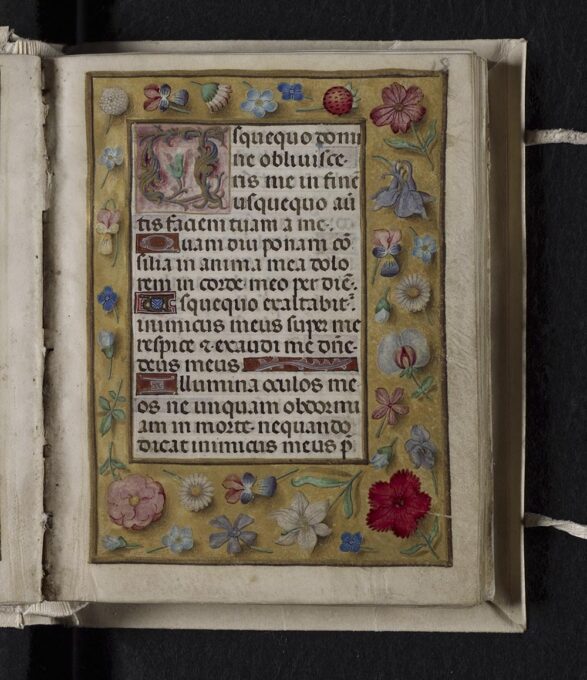 Usquequo domi
ne obliuisce-
ris me in finē
usquequo auer
tis faciem tuam a me.
Quam diu ponam cō
silia in anima mea dolo
rem in corde meo per diē.
Usquequo exaltabitᷣ
inimicus meus super me
respice ⁊ exaudi me dñe
deus meus
Illumina oculos me
os ne unquam obdormi
am in morte nequando
dicat inimicus meus p̄